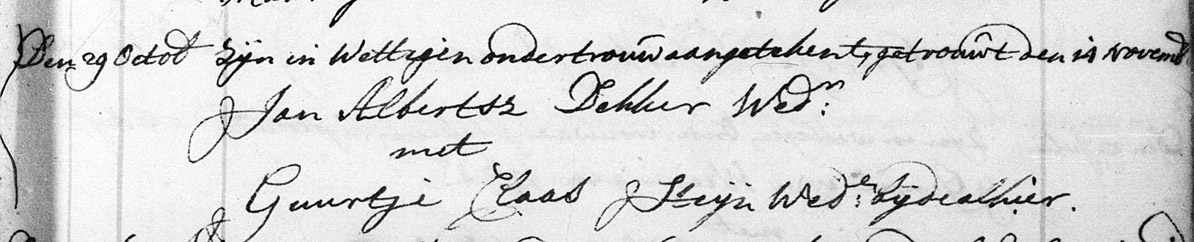 Den 29 Octob Zijn in Wettigen ondertrouw aangetekent, getrouwt den 14 Novemb
Jan Albertsz Dekker Wedn:
met
Guurtje Claas Steijn Weden: bijde alhier.